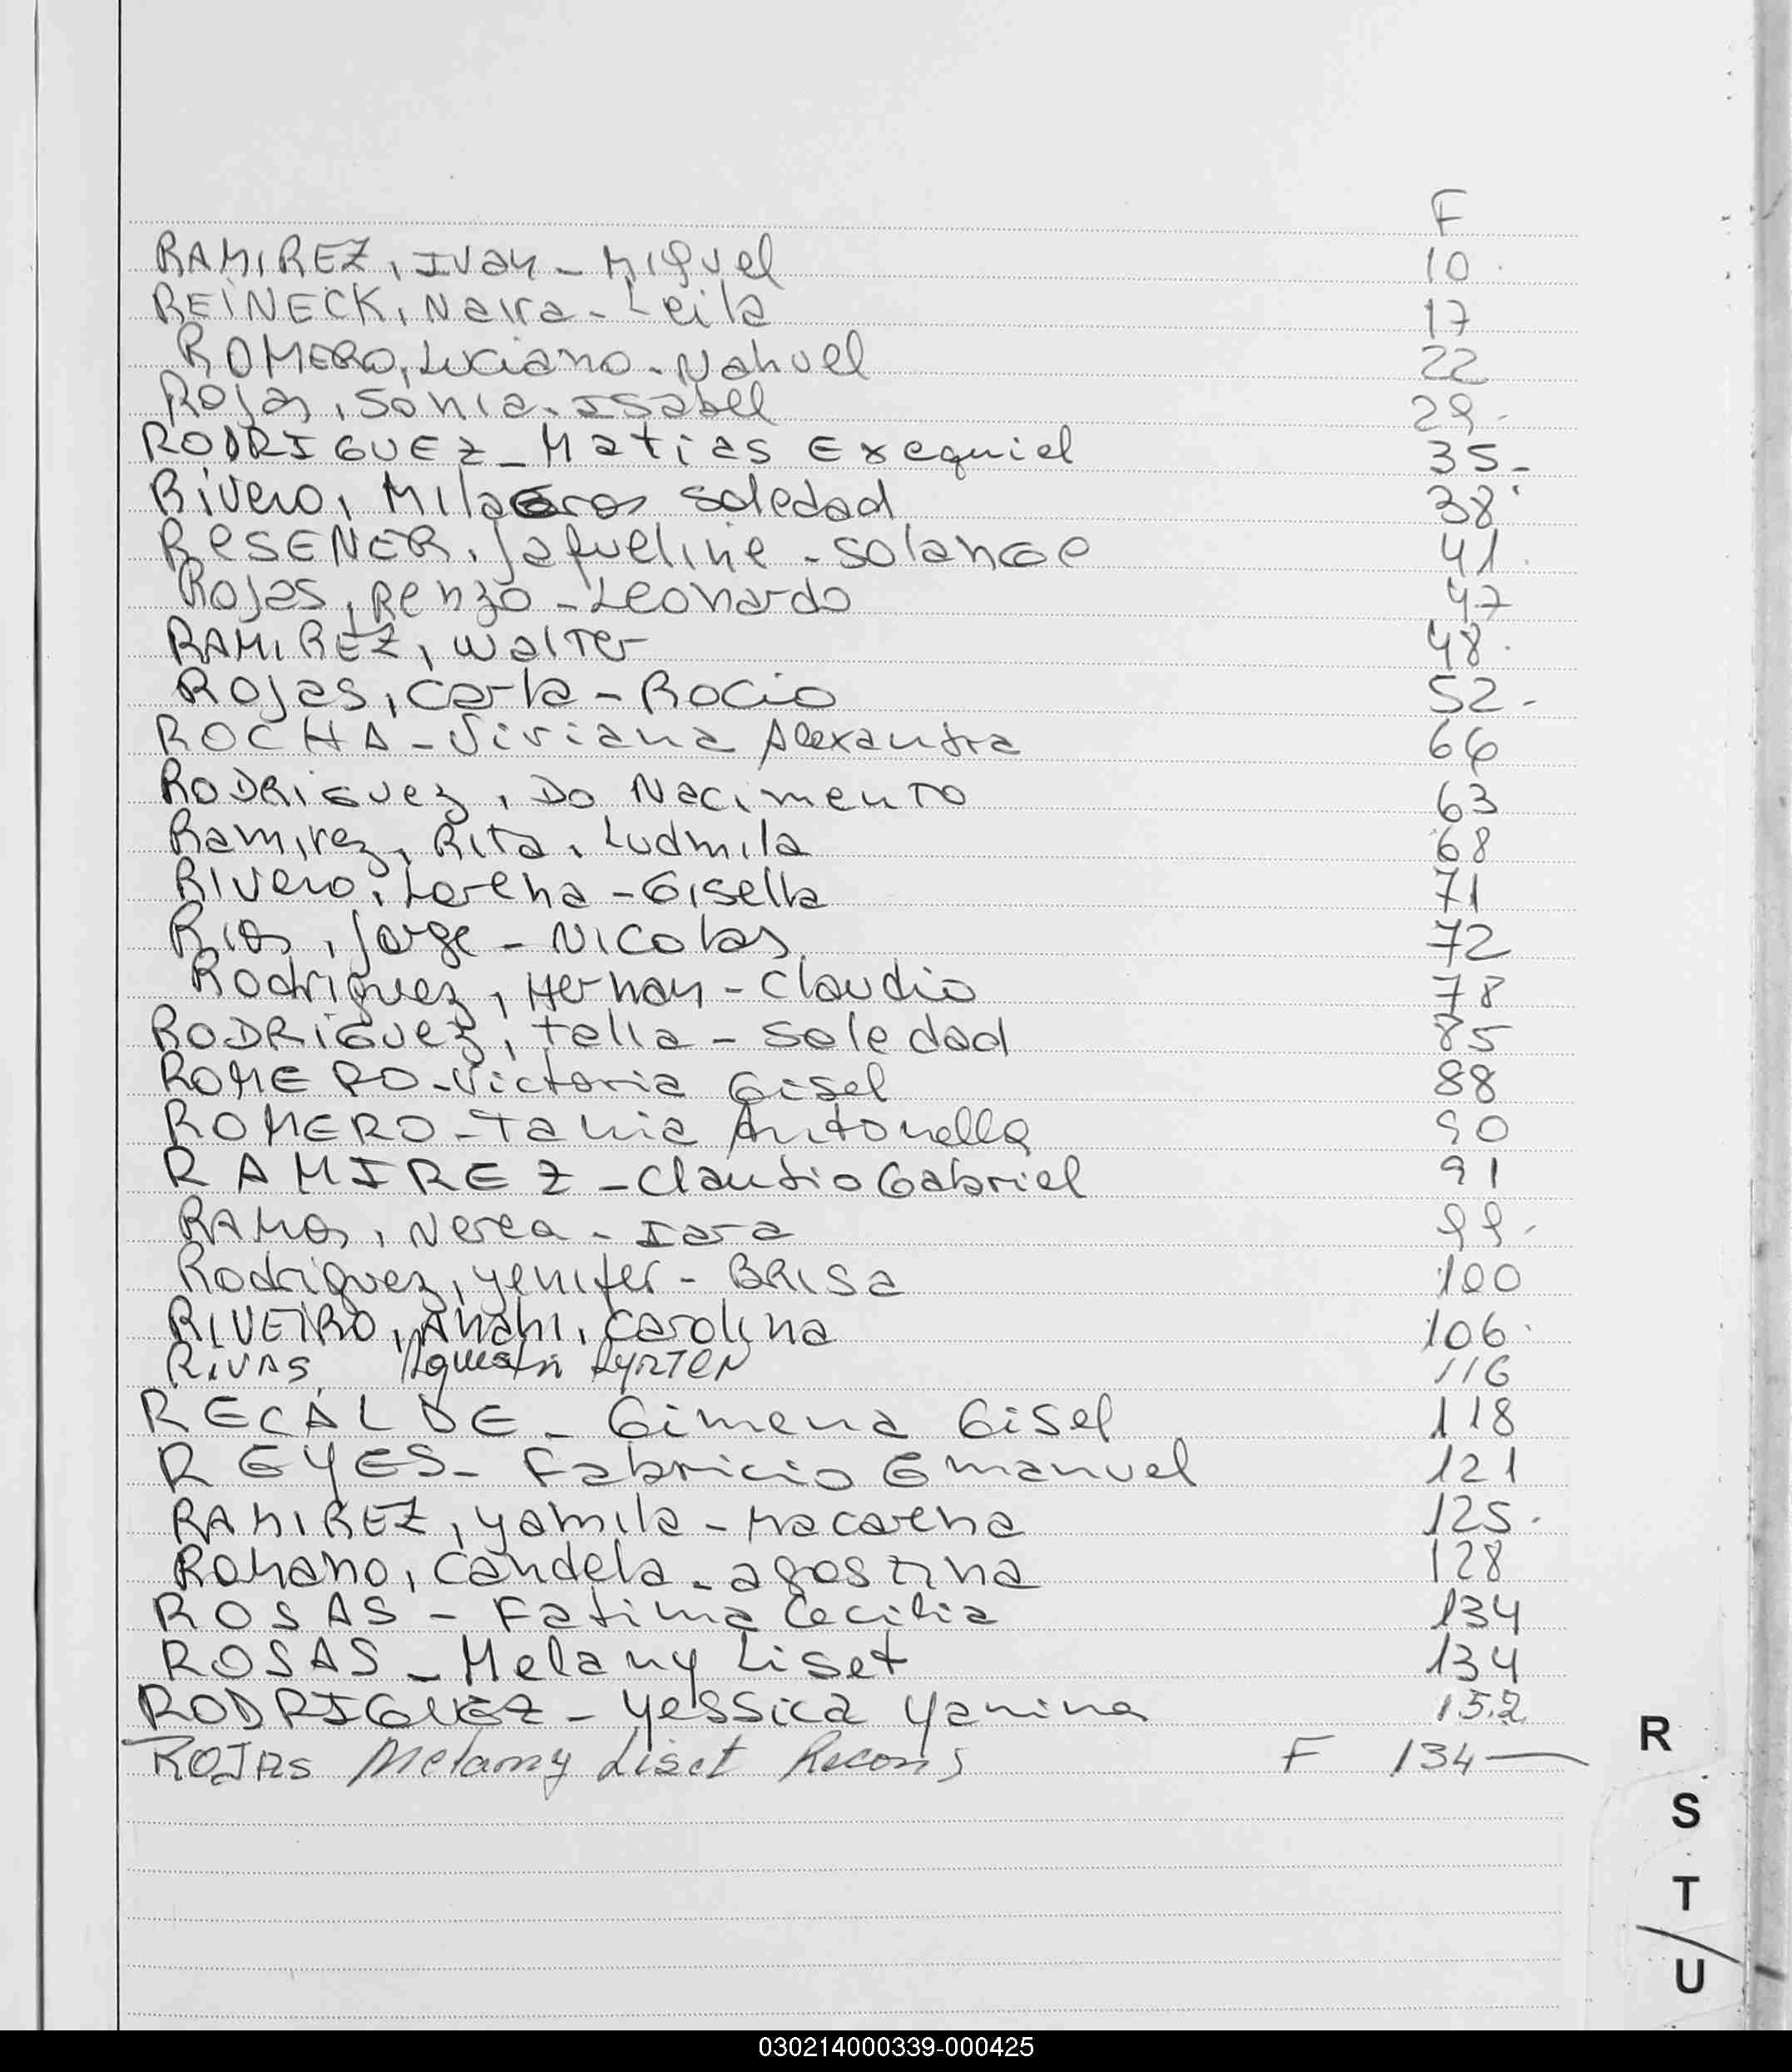 F
RAMIREZ, Ivan - Miguel 10
REINECK, Naira - Leila 17
ROMERO, Luciano - Nahuel 22
Rojas, Sonia - Isabel 29
RODRIGUEZ - Matias Exequiel 35
Rivero, Milagros Soledad 38
ReSENER, Jaqueline - Solange 41
Rojas, Renzo - Leonardo 47
RAMIREZ, Walter 48
Rojas, Carla - Rocio 52
ROCHA - Viviana Alexandra 66
RODRIGUEZ, Do Nacimento 63
Ramirez, Rita, Ludmila 68
Rivero, Lorena - Gisella 71
Rios, Jorge - Nicolas 72
Rodriguez, Hernan - Claudio 78
RODRIGUEZ, talia - Soledad 85
ROMERO - Victoria Gisel 88
ROMERO - Tania Antonella 90
RAMIREZ - Claudio Gabriel 91
RAMOS, Nerea - Iara 99
Rodriguez, yenifer - BRISa 100
RIVEIRO, Anahi, Carolina 106
RIVAS Agustin AyRTON 116
RECALDE - Gimena Gisel 118
REYES - Fabricio Emanuel 121
RAMIREZ, yamila - Macarena 125
Romano, Candela - agostina 128
ROSAS - Fatima Cecilia 134
ROSAS - Melany Liset 134
RODRIGUEZ - Yessica Yanina 152
ROJAS Melany Liset Recons F 134
R
S
T
U
030214000339-000425